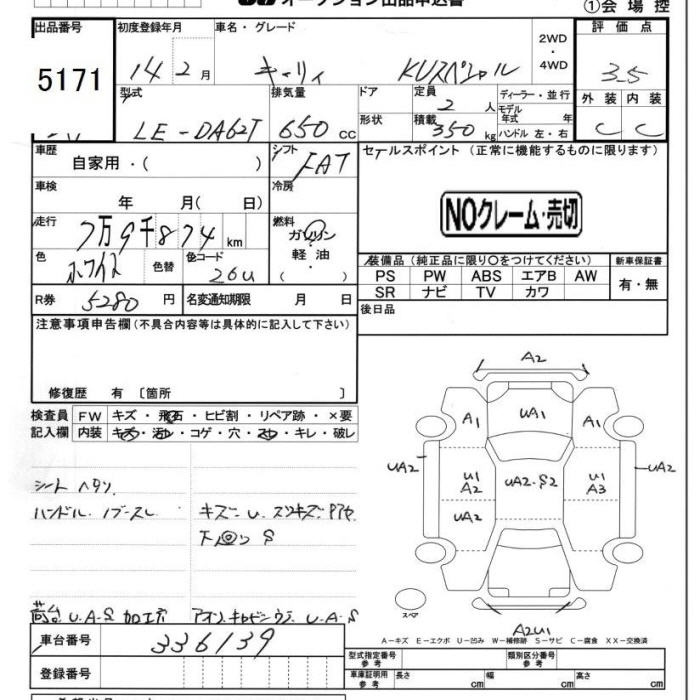 オークション出品申込書
①会場控
出品番号
5171
初度登録年月
14年2月
車名・グレード
キャリィ KUスペシャル
2WD
・
4WD
評価点
3.5
外装 内装
C C
型式
LE-DA62T
排気量
650cc
ドア
形状
定員
2人
積載
350kg
ディーラー・並行
モデル年式 年
ハンドル 左・右
車歴
自家用・( )
シフト
FAT
車検
年 月( 日)
冷房
走行
7万9千874km
燃料
ガソリン
軽油
( ・ )
色
ホワイト
色替
色コード
26U
R券
5280円
名変通知期限 月 日
セールスポイント(正常に機能するものに限ります)
NOクレーム・売切
装備品(純正品に限り○をつけてください)
新車保証書
PS PW ABS エアB AW
SR ナビ TV カワ
有・無
後日品
注意事項申告欄(不具合内容等は具体的に記入して下さい)
修復歴 有〔箇所 〕
検査員記入欄
FW キズ・飛石・ヒビ割・リペア跡・×要
内装 キズ・汚れ・コゲ・穴・スレ・キレ・破レ
シート ヘタリ
ハンドル
キズ U スリキズ
下回り S
荷台 U.A.S 加工穴
U.A.S
A2
UA1
A1
A1
UA2
U1
A2
UA2
UA2・S2
U1
A3
UA2
スペア
A2U1
A-キズ E-エクボ U-凹み W-補修跡 S-サビ C-腐食 XX-交換済
車台番号
336139
登録番号
型式指定番号
参考
類別区分番号
参考
車庫証明用
参考
長さ cm 幅 cm 高さ cm